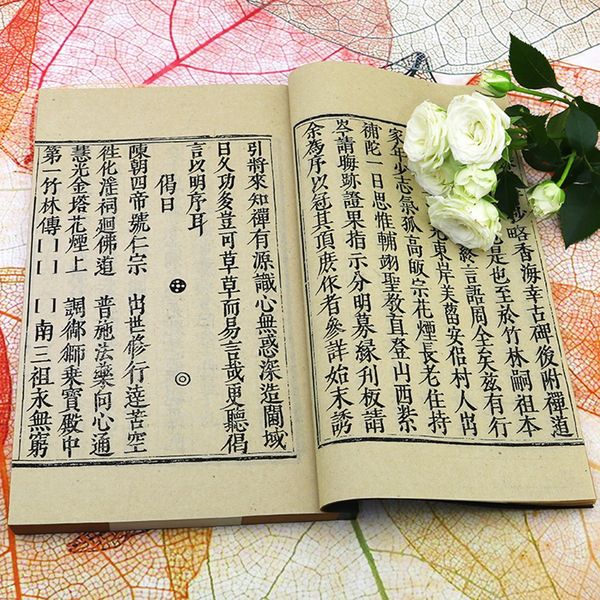 略香海幸古碑後附禪道
是也至於竹林嗣祖本
終言語周全矣茲有行
東岸芙蕾安佋村人出
家年少志氣孤高敀宗花煙長老住持
補陀一日思惟輔翊聖教直登山西紫
岑請晦跡證果指示分明募緣刋板請
余為序以冠其頂庶作者參詳始末誘
引將來知禪有源識心無惑深造閫域
日久功多豈可草草而易言哉更聽偈
言以明序耳
偈曰
陳朝四帝號仁宗 出世修行達苦空
徃化滛祠迴佛道 普施法藥向心通
慧光金塔花煙上 調御師乘寶殿中
第一竹林傳 南三祖永無窮